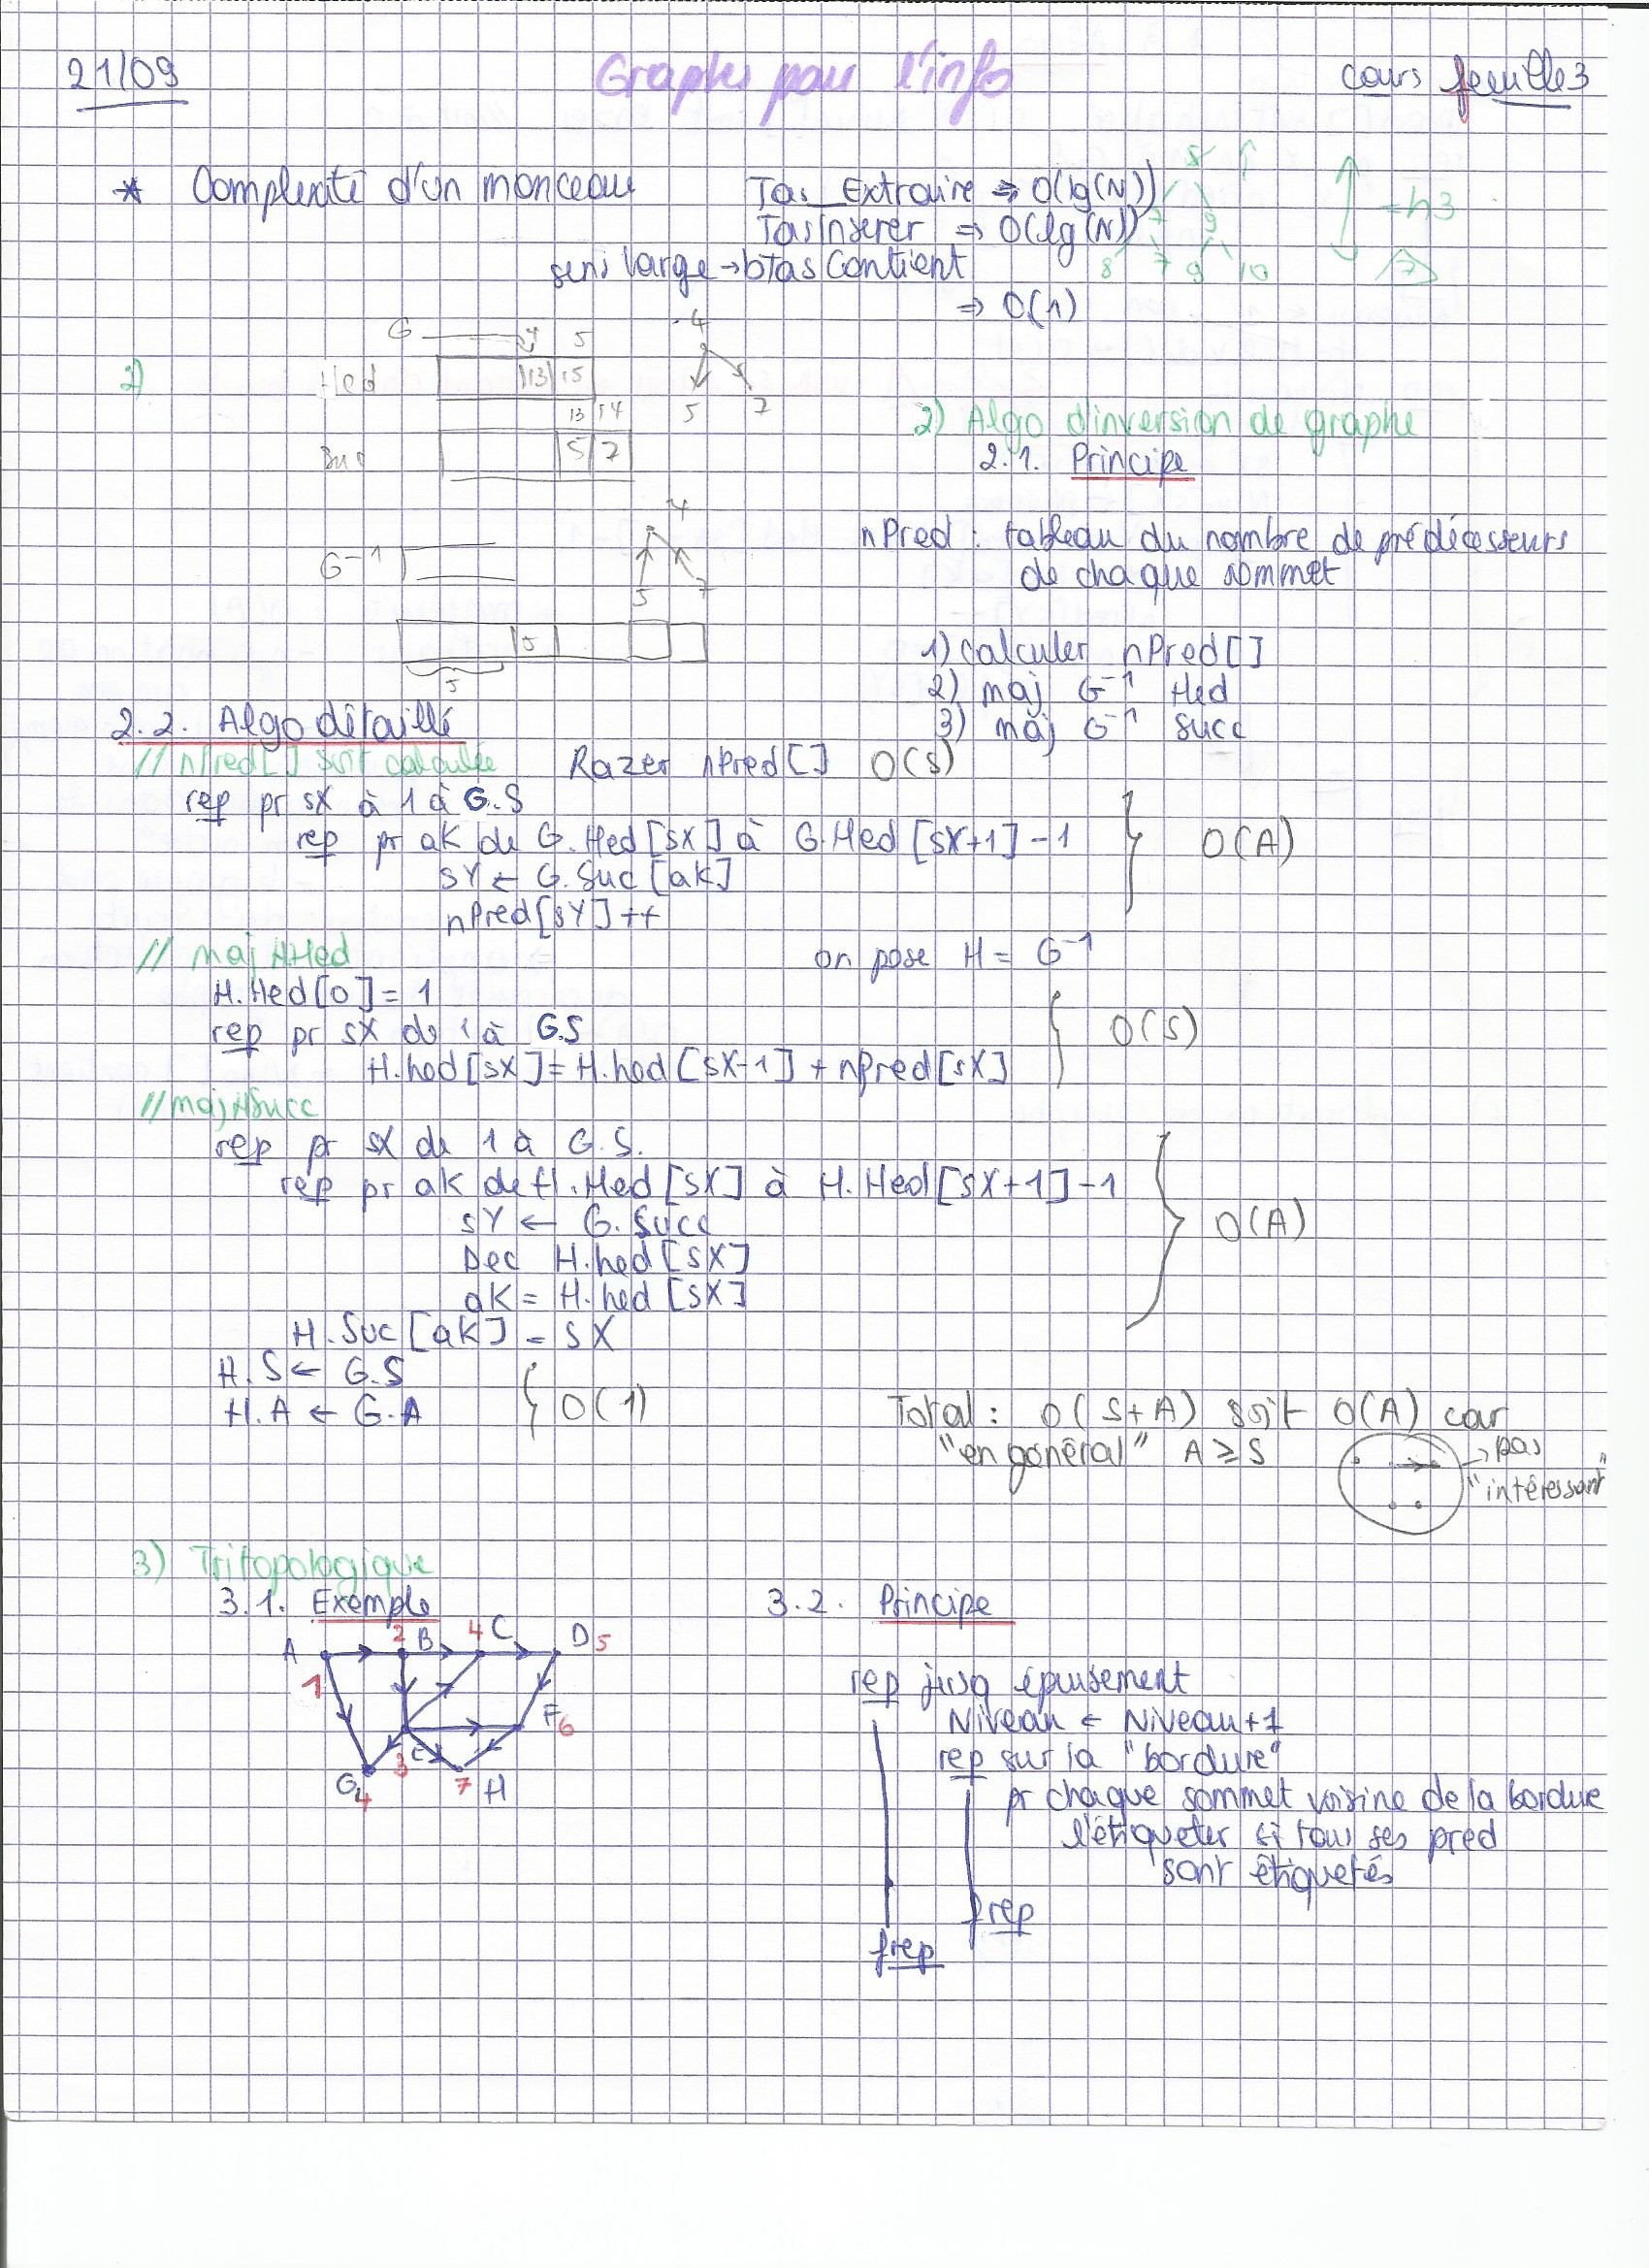 21/09
Graphs pour l'info
cours feuille 3
* Complexité d'un monceau
Tas_Extraire => O(lg(N))
TasInserer => O(lg(N))
sens large → bTasContient
=> O(1)
8
7 9
8 7 9 10
= h3
7
G 4 5
Hed 13 15
13 14
Suc 5 7
4
5 7
2) Algo d'inversion de graphe
2.1. Principe
nPred : tableau du nombre de prédécesseurs
de chaque sommet
G⁻¹
4
5 7
5
5
1) calculer nPred[]
2) maj G⁻¹ Hed
3) maj G⁻¹ Succ
2.2. Algo détaillé
// nPred[] soit calculée Razer nPred[] O(S)
rep pr sX à 1 à G.S
rep pr aK de G.Hed[sX] à G.Hed[sX+1]-1
sY ← G.Suc[aK]
nPred[sY]++
O(A)
// maj HHed
on pose H = G⁻¹
H.Hed[0] = 1
rep pr sX de 1 à G.S
H.hed[sX] = H.hed[sX-1] + nPred[sX]
O(S)
// maj HSucc
rep pr sX de 1 à G.S.
rep pr aK de H.Hed[sX] à H.Hed[sX+1]-1
sY ← G.Succ
Dec H.hed[sX]
aK = H.hed[sX]
H.Suc[aK] = sX
O(A)
H.S ← G.S
H.A ← G.A
O(1)
Total : O(S+A) soit O(A) car
"en général" A ≥ S
→ pas
"intéressant"
3) Tri topologique
3.1. Exemple
A 1
2 B
4 C
D 5
F 6
E 3
G 4
7 H
3.2. Principe
rep jusq épuisement
Niveau ← Niveau+1
rep sur la "bordure"
pr chaque sommet voisine de la bordure
l'étiqueter si tous ses pred
sont étiquetés
frep
frep